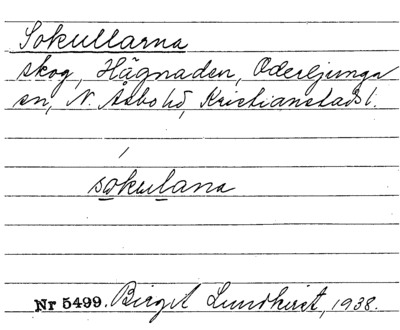 Sokullarna
skog, Hägnaden, Oderljunga
sn, N. Åsbo hd, Kristianstads l.
sokulana
Nr 5499. Birgit Lundkvist, 1938.